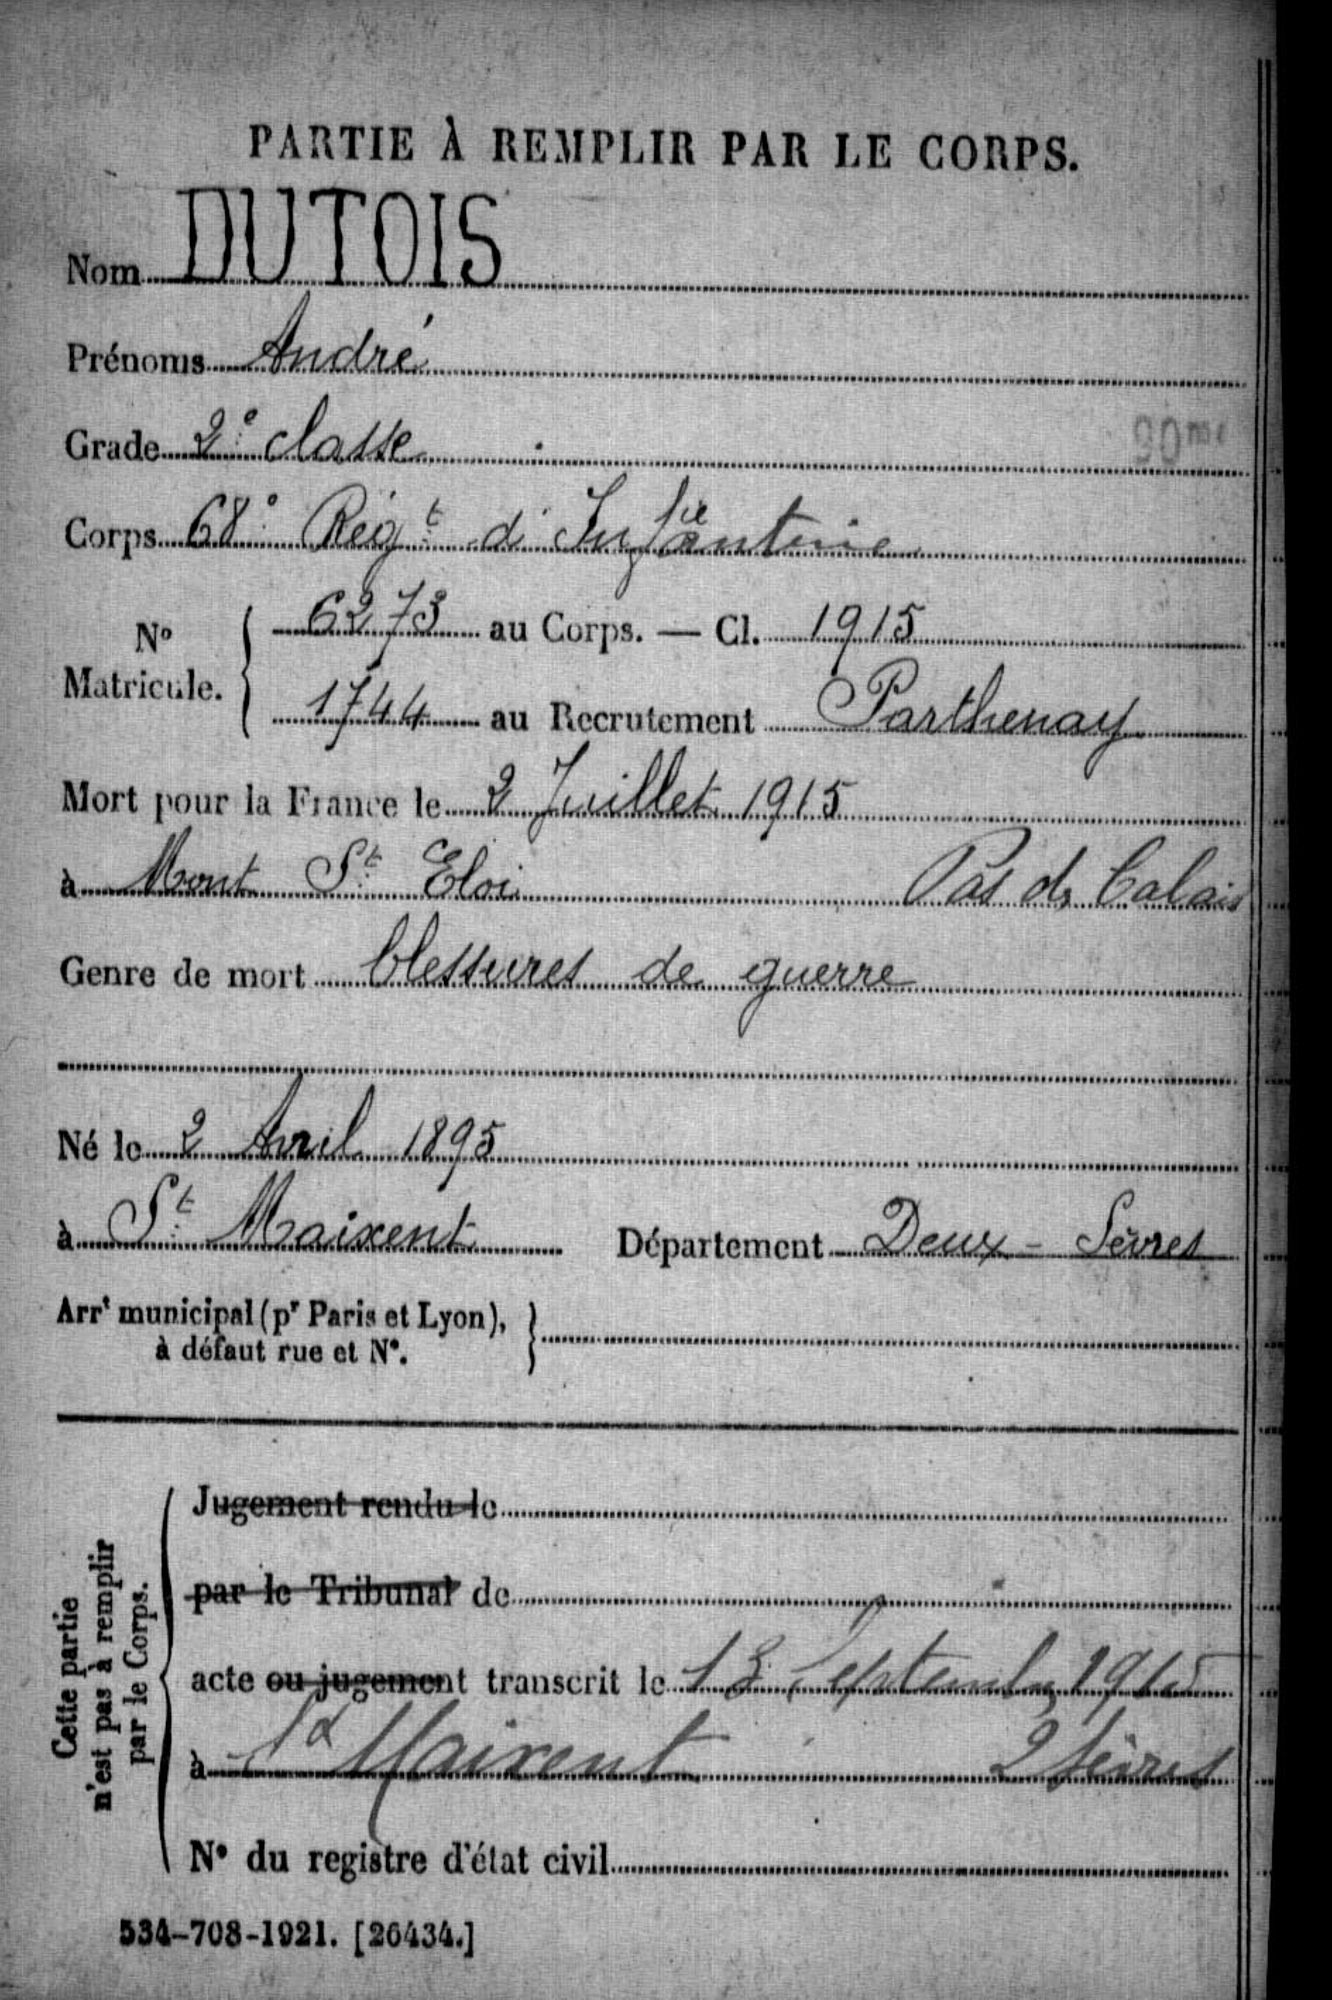 PARTIE À REMPLIR PAR LE CORPS.
Nom DUTOIS
Prénoms André
Grade 2e classe
Corps 68e Régt d'Infanterie
No Matricule. 6273 au Corps. — Cl. 1915
1744 au Recrutement Parthenay
Mort pour la France le 2 Juillet 1915
à Mont St Eloi Pas de Calais
Genre de mort blessures de guerre
Né le 2 Avril 1895
à St Maixent Département Deux-Sèvres
Arrt municipal (pr Paris et Lyon),
à défaut rue et N°.
Cette partie
n'est pas à remplir
par le Corps.
Jugement rendu le
par le Tribunal de
acte ou jugement transcrit le 13 Septembre 1915
à St Maixent 2 Sèvres
N° du registre d'état civil
534-708-1921. [26434.]